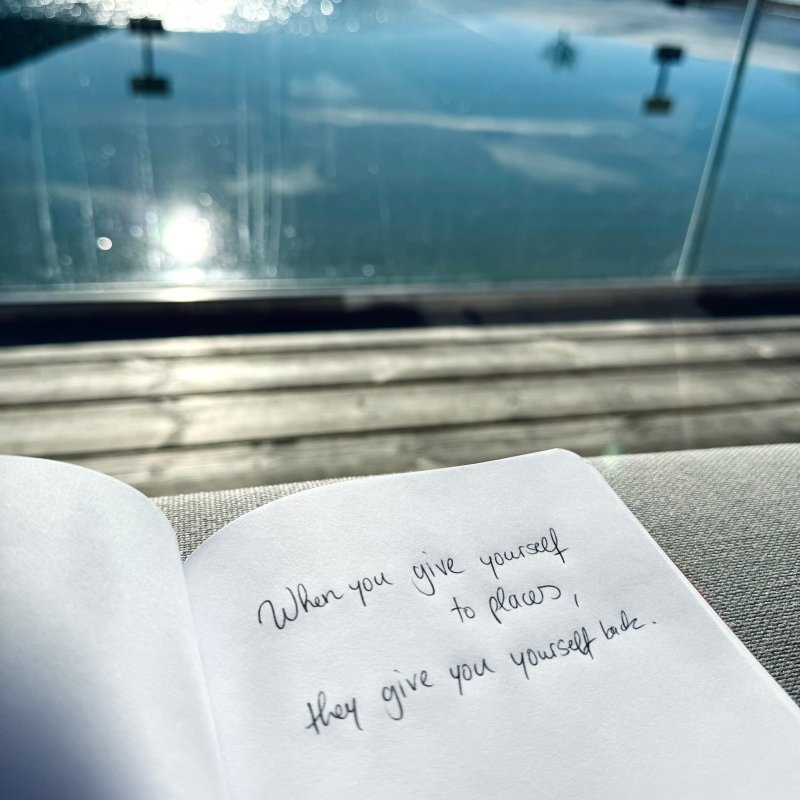 When you give yourself
to places,
they give you yourself back.